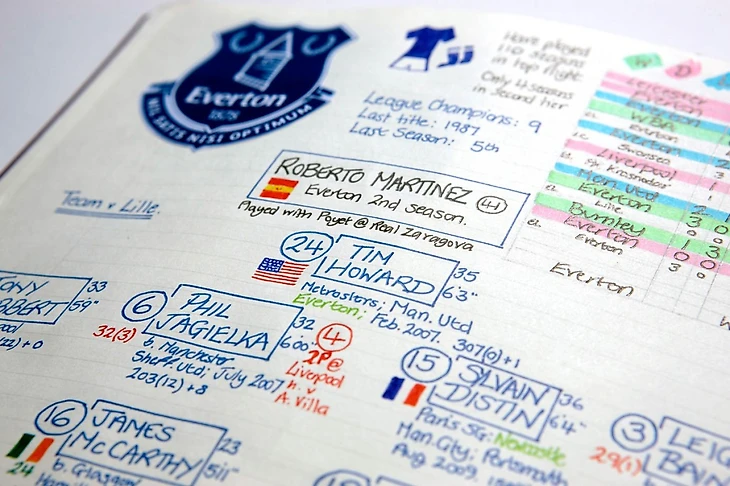 Everton
1878
NIL SATIS NISI OPTIMUM
Have played
110 seasons
in top flight.
Only 4 seasons
in second tier
League Champions: 9
Last title: 1987
Last Season: 5th
ROBERTO MARTINEZ 41
Everton 2nd season.
Played with Poyet @ Real Zaragova
Team v Lille.
Leicester
Everton
Everton
WBA
Everton
Everton
Swansea
Liverpool
Everton
Krasnodar
Man Utd
Everton
Lille
Burnley
Everton
Everton
Everton
3 0
0 0
1 3
0 0
3 0
24 TIM
HOWARD 35
6'3"
Metrostars; Man. Utd
Everton; Feb. 2007. 307(0)+1
33
5'9"
6 PHIL
JAGIELKA 32
6'00"
32(3)
b. Manchester
Sheff. Utd; July 2007
203(12)+8
4
2P@
Liverpool
h. v
A. Villa
15 SYLVAIN
DISTIN 36
6'4"
Paris SG; Newcastle
Man. City; Portsmouth
Aug 2009.
16 JAMES
McCARTHY 23
5'11"
24
b. Glasgow
3
29(1)